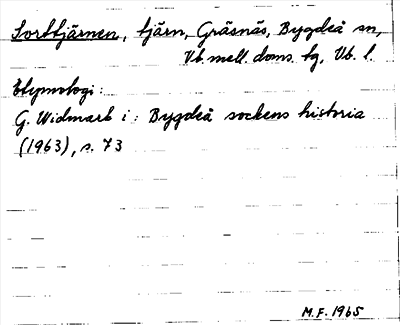 Sorttjärnen, tjärn, Gräsnäs, Bygdeå sn,
Vb. mell. doms. tg, Vb. l.
Etymologi:
G. Widmark i: Bygdeå sockens historia
(1963), s. 73
M.F. 1965